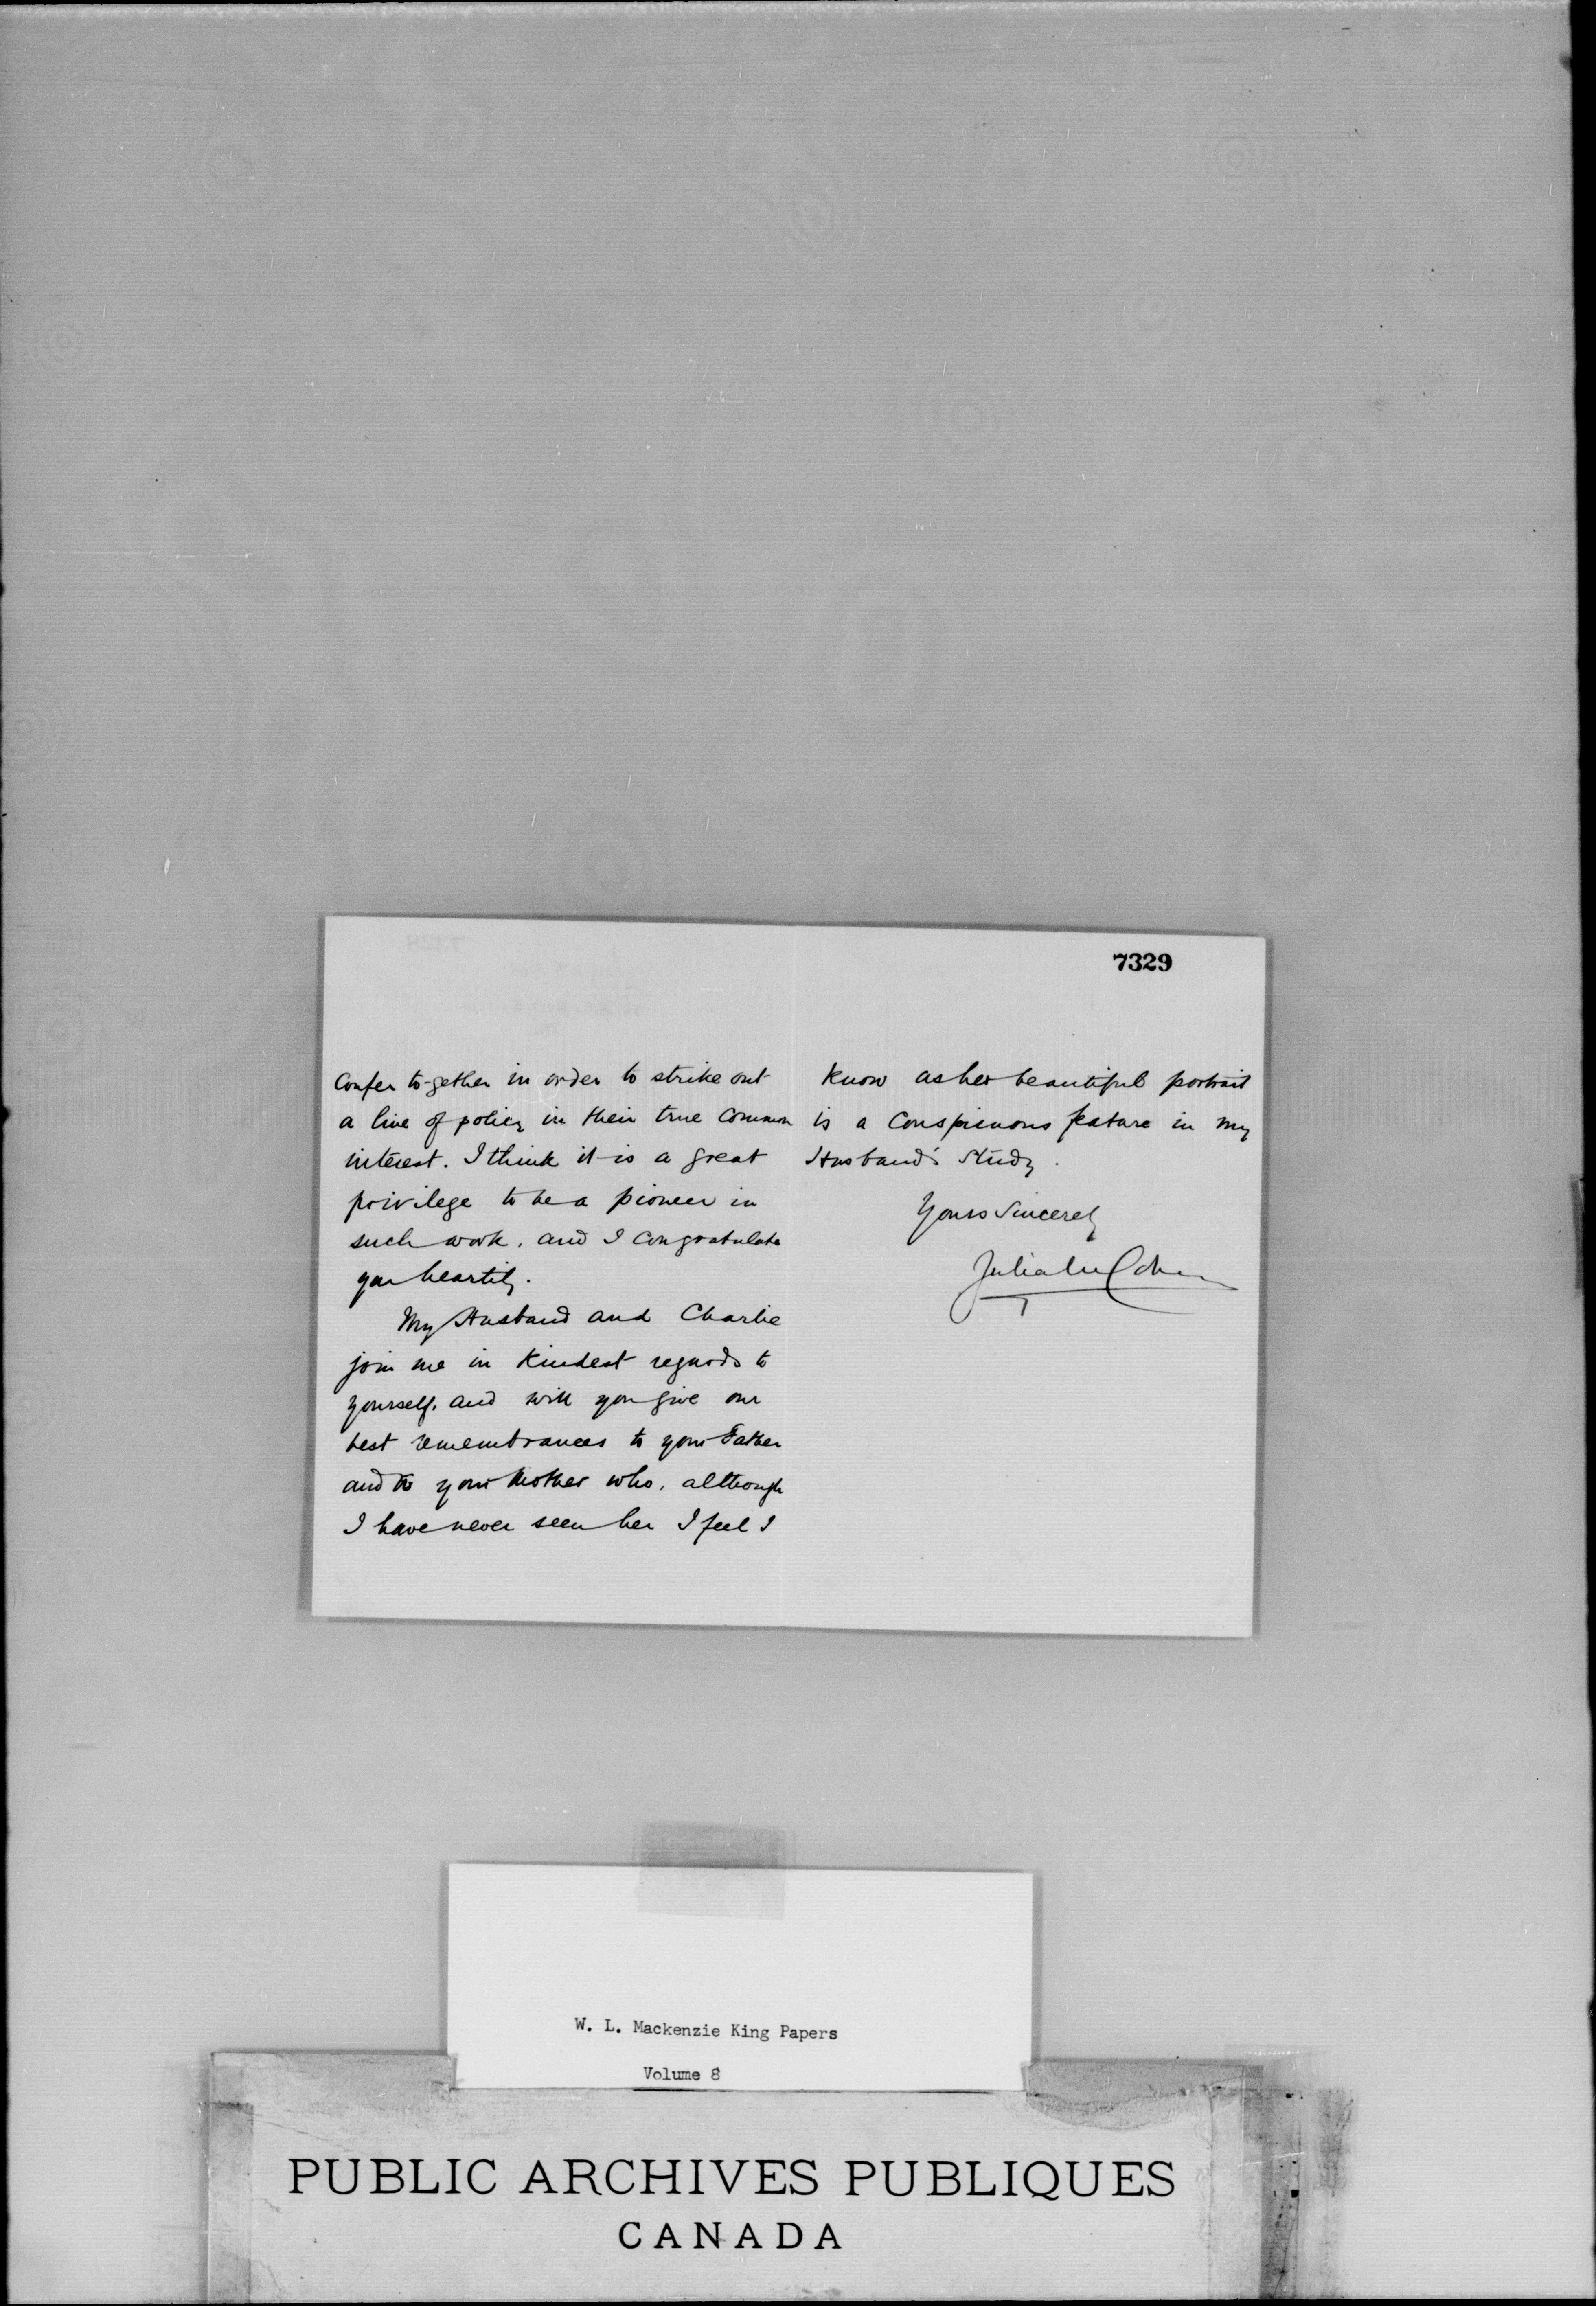 7329
Confer to-gether in order to strike out
a line of policy in their true common
interest. I think it is a great
privilege to be a pioneer in
such work, and I congratulate
you heartily.
My Husband and Charlie
join me in kindest regards to
yourself, and will you give our
best remembrances to your Father
and to your Mother who, although
I have never seen her I feel I
know as her beautiful portrait
is a conspicuous feature in my
Husband's study.
Yours sincerely
Julia Cohen
W. L. Mackenzie King Papers
Volume 8
PUBLIC ARCHIVES PUBLIQUES
CANADA